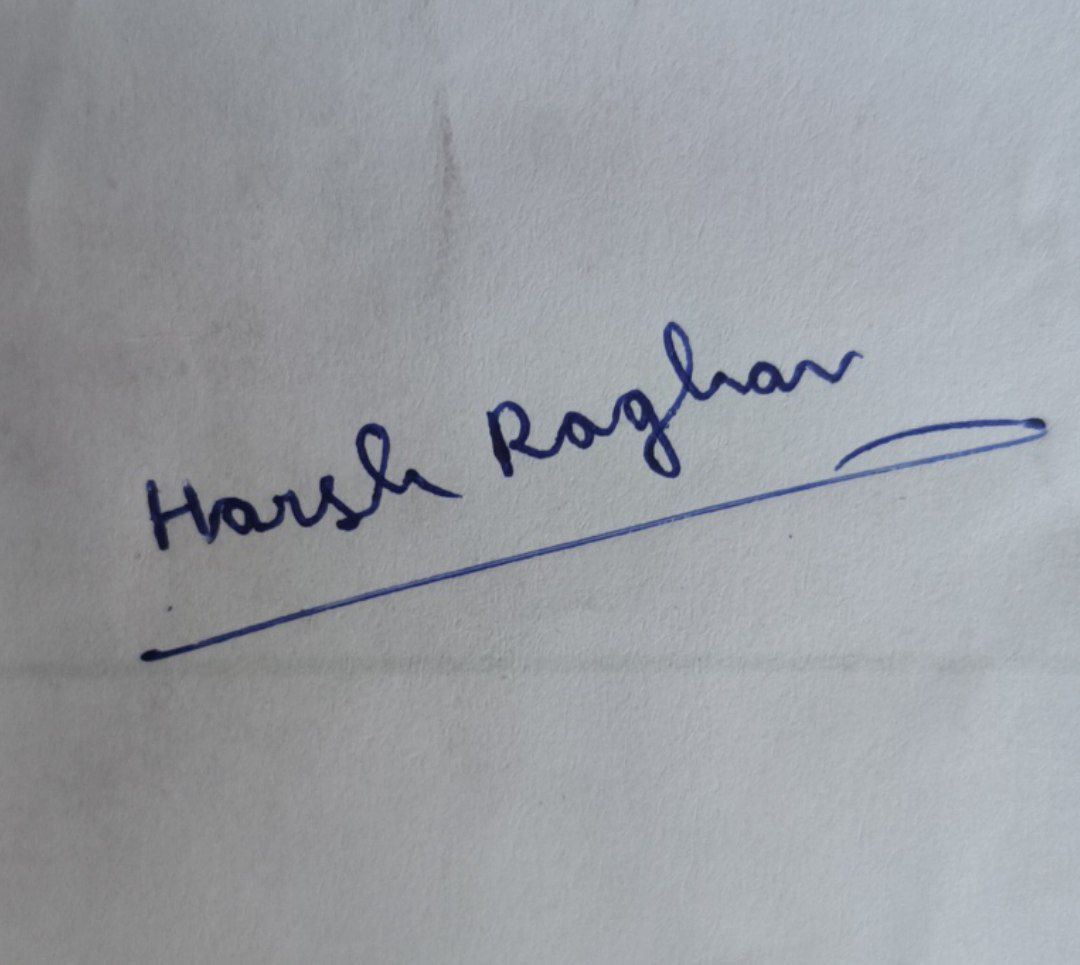 Harsh Raghav